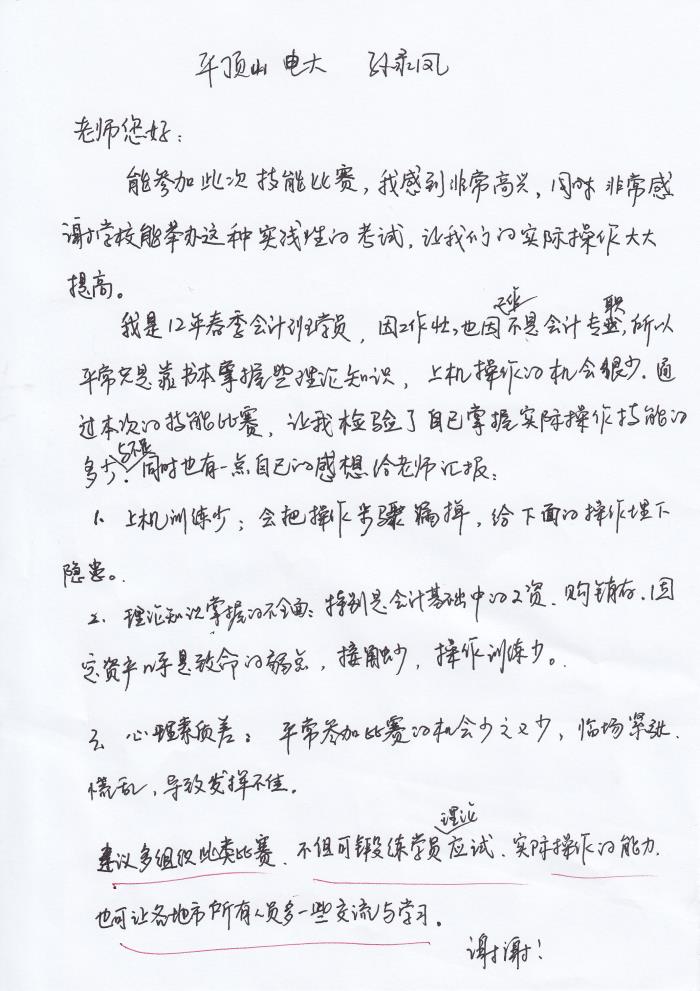 平顶山电大 孙永凤
老师您好：
能参加此次技能比赛，我感到非常高兴，同时非常感
谢学校能举办这种实践性的考试，让我们的实际操作大大
提高。
我是12年春季会计班学员，因工作忙，也因工作不是会计专职业，所以
平常只是靠书本掌握些理论知识，上机操作的机会很少．通
过本次的技能比赛，让我检验了自己掌握实际操作技能的
多少与不足．同时也有一点自己的感想给老师汇报：
1、上机训练少；会把操作步骤漏掉，给下面的操作埋下
隐患。
2、理论知识掌握的不全面：特别是会计基础中的工资、购销存、固
定资产等是致命的弱点，接触少，操作训练少。
3、心理素质差：平常参加比赛的机会少之又少，临场紧张、
慌乱，导致发挥不佳。
建议多组织此类比赛、不但可锻练学员理论应试、实际操作的能力．
也可让各地市所有人员多一些交流与学习。
谢谢！